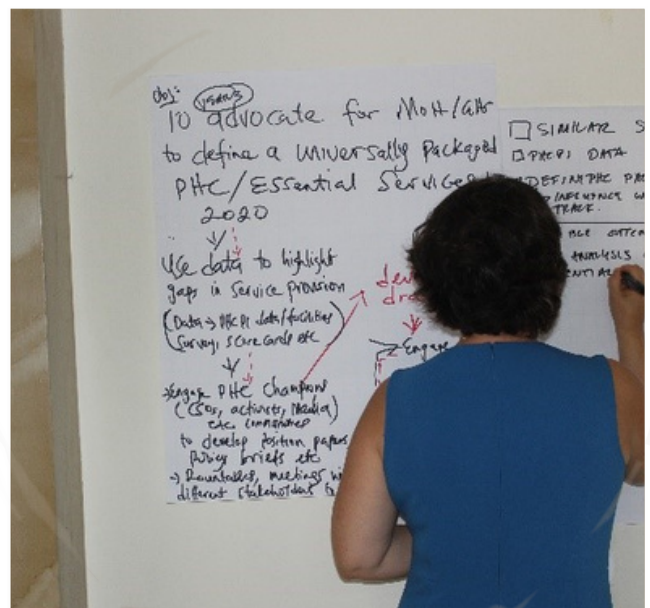 Obj:
To advocate for MoH/
to define a universally Packaged
PHC/Essential Services
2020
Use data to highlight
gaps in service provision
(Data → PHCPI data/facilities
survey, score cards etc)
→ Engage PHC Champions
(CSOs, activists, Media)
etc
to develop position papers
Policy briefs etc
→ Roundtables, meetings
different stakeholders
dev
Engage
SIMILAR S
PHCPI DATA
DEFINE PHC PAC
INFLUENCE
TRACK.
ANALYSIS